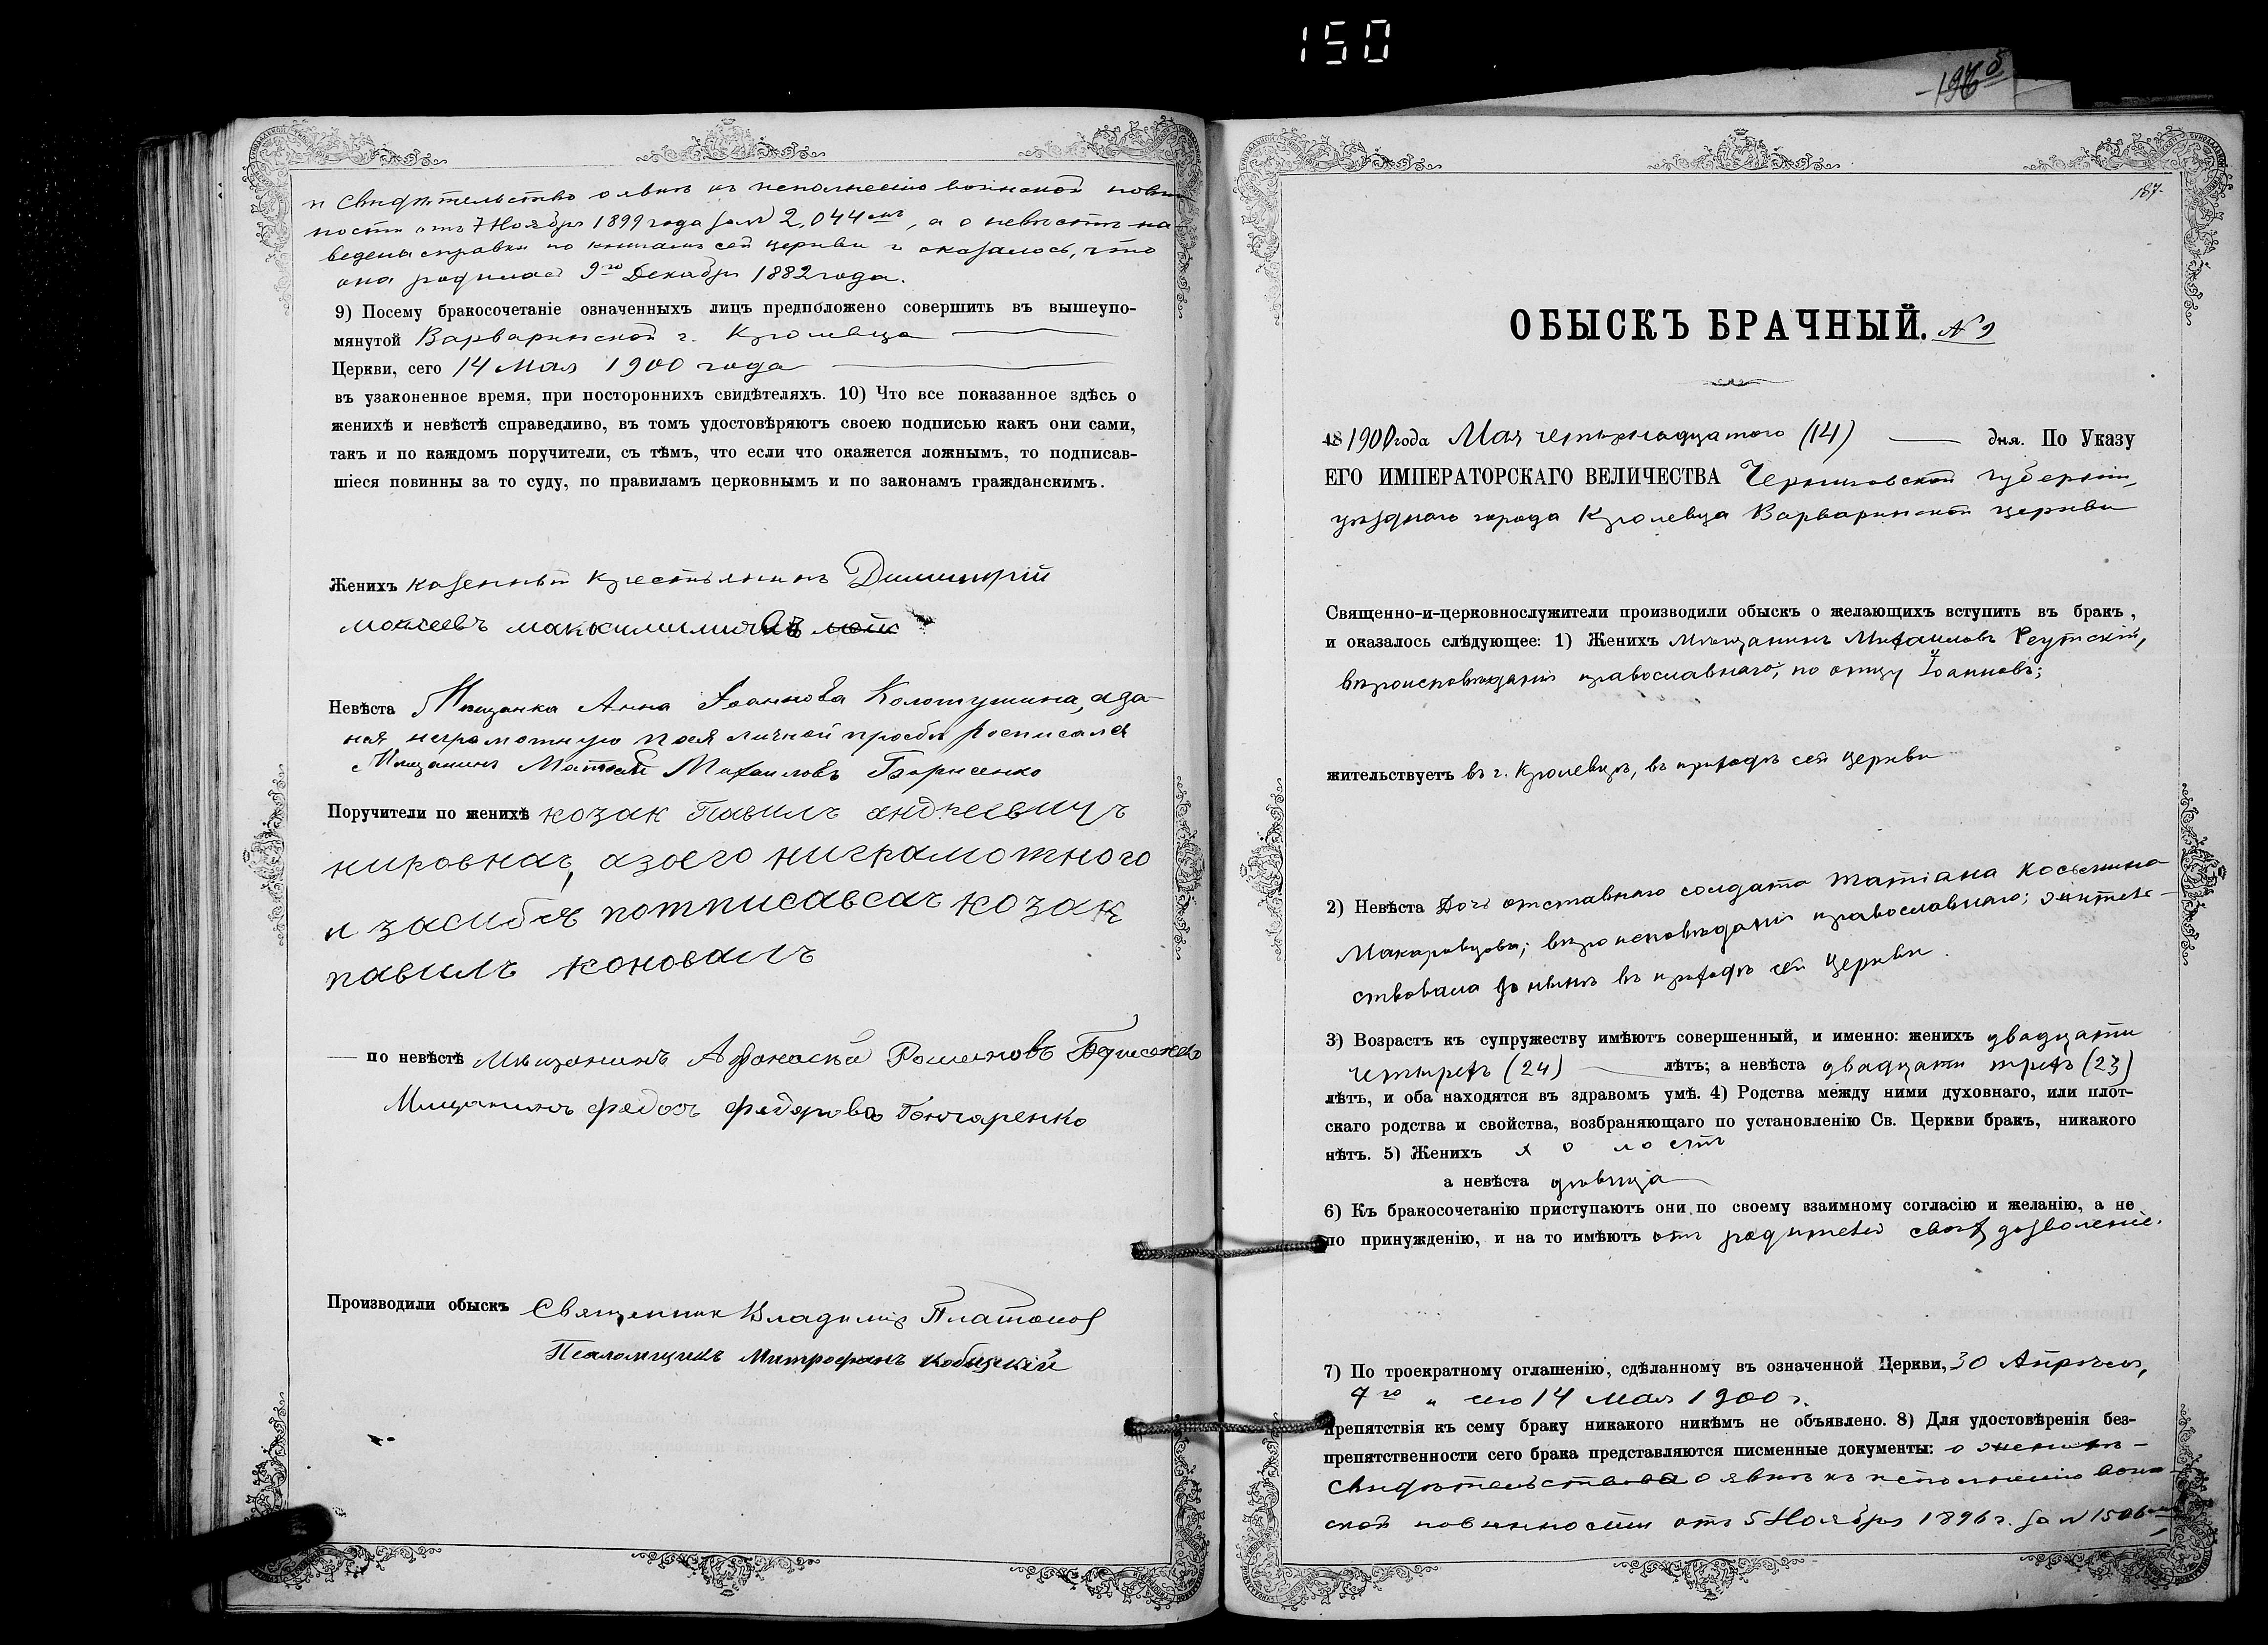 150
и Свидѣтельство о явкѣ къ исполненію воинской повин-
ности отъ 7 Ноября 1899 года за № 2,044мъ, а о невѣстѣ на-
ведена справка по книгамъ сей церкви и оказалось, что
она родилась 9го Декабря 1882 года.
9) Посему бракосочетаніе означенныхъ лицъ предположено совершить въ вышеупо-
мянутой Варваринской г. Кролевца
Церкви, сего 14 Мая 1900 года
въ узаконенное время, при постороннихъ свидѣтеляхъ. 10) Что все показанное здѣсь о
женихѣ и невѣстѣ справедливо, въ томъ удостовѣряютъ своею подписью какъ они сами,
такъ и по каждомъ поручители, съ тѣмъ, что если что окажется ложнымъ, то подписав-
шіеся повинны за то суду, по правиламъ церковнымъ и по законамъ гражданскимъ.
Женихъ казенный крестьянинъ Димитрій
моисеевъ
Невѣста Мѣщанка Анна Іоаннова Колотушина, а за-
нея неграмотную поея личной прозбѣ росписался
Мѣщанинъ Матвей Михаиловъ Борисенко
Поручители по женихѣ козак Павилъ андреевичъ
азоего ниграмотного
и засибя потписавсач козак
павилъ коновалъ
— по невѣстѣ Мѣщанинъ Афанасій Романовъ Борисенко
Мѣщанинъ федоръ Федоровъ Гончаренко
Производили обыскъ Священник Владиміръ Платонов
Псаломщикъ Митрофанъ Кобыцкій
187
ОБЫСКЪ БРАЧНЫЙ. № 9
18 1900 года Мая четырнадцатого (14) — дня. По Указу
ЕГО ИМПЕРАТОРСКАГО ВЕЛИЧЕСТВА Черниговской губерніи,
уѣзднаго города Кролевца Варваринской церкви
Священно-и-церковнослужители производили обыскъ о желающихъ вступить въ бракъ,
и оказалось слѣдующее: 1) Женихъ мѣщанинъ Михаиловъ Реутскій,
вѣроисповѣданія православнаго, по отцу Іоанновъ;
жительствуетъ въ г. Кролевцѣ, въ приходѣ сей церкви
2) Невѣста Дочь отставнаго солдата Татіана Косьмина
Макаровцова; вѣроисповѣданія православнаго; жительс-
ствовала донынѣ въ приходѣ сей церкви.
3) Возрастъ къ супружеству имѣютъ совершенный, и именно: женихъ двадцати
четырехъ (24) — лѣтъ; а невѣста двадцати трехъ (23)
лѣтъ, и оба находятся въ здравомъ умѣ. 4) Родства между ними духовнаго, или плот-
скаго родства и свойства, возбраняющаго по установленію Св. Церкви бракъ, никакого
нѣтъ. 5) Женихъ холостъ
а невѣста дѣвица
6) Къ бракосочетанію приступаютъ они по своему взаимному согласію и желанію, а не
по принужденію, и на то имѣютъ отъ родителей своихъ дозволеніе.
7) По троекратному оглашенію, сдѣланному въ означенной Церкви, 30 Апрѣля,
7го и сего 14 Мая 1900 г.
препятствія къ сему браку никакого никѣмъ не объявлено. 8) Для удостовѣренія без-
препятственности сего брака представляются писменные документы: о женихѣ —
Свидѣтельство о явкѣ къ исполненію воин-
ской повинности отъ 5 Ноября 1896 г. за № 1506